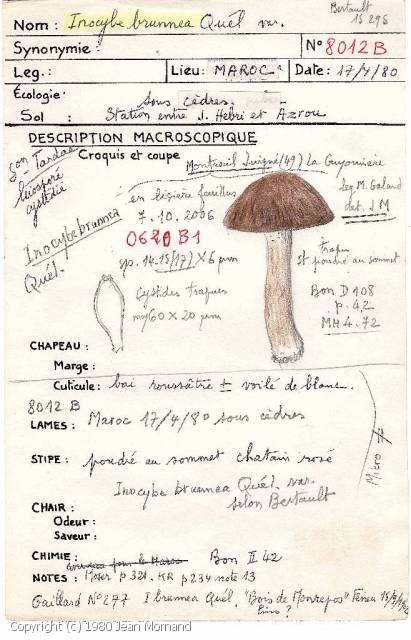 Bertault
15 296
Nom : Inocybe brunnea Quél var.
Synonymie :
N° 8012 B
Leg. :
Lieu : MAROC
Date : 17/4/80
Écologie :
sous cèdres.
Sol : Station entre J. Hebri et Azrou
DESCRIPTION MACROSCOPIQUE
Croquis et coupe
Son Tardae
leiosporé
cystidié
Montreuil Juigné (49) La Guyonnière
en lisière feuillus
7. 10. 2006
leg M. Galand
det. J M
Inocybe brunnea
Quél.
0620 B1
sp. 14-15(17) X 6 µm
trapu
St poudré au sommet
Cystides trapues
moy 60 X 20 µm
Bon D 108
p. 42
MH 4. 72
CHAPEAU :
Marge :
Cuticule : bai roussâtre ± voilé de blanc.
8012 B
LAMES : Maroc 17/4/80 sous cèdres
STIPE : poudré au sommet chatain rosé
Micro
Inocybe brunnea Quél. var.
selon Bertault
CHAIR :
Odeur :
Saveur :
CHIMIE : Bon II 42
NOTES : Moser p 321. KR p 234 note 13
Gaillard N° 277 I brunnea Quél. "Bois de Monrepos"
Pins ?
Copyright (c) 1980 Jean Mornand